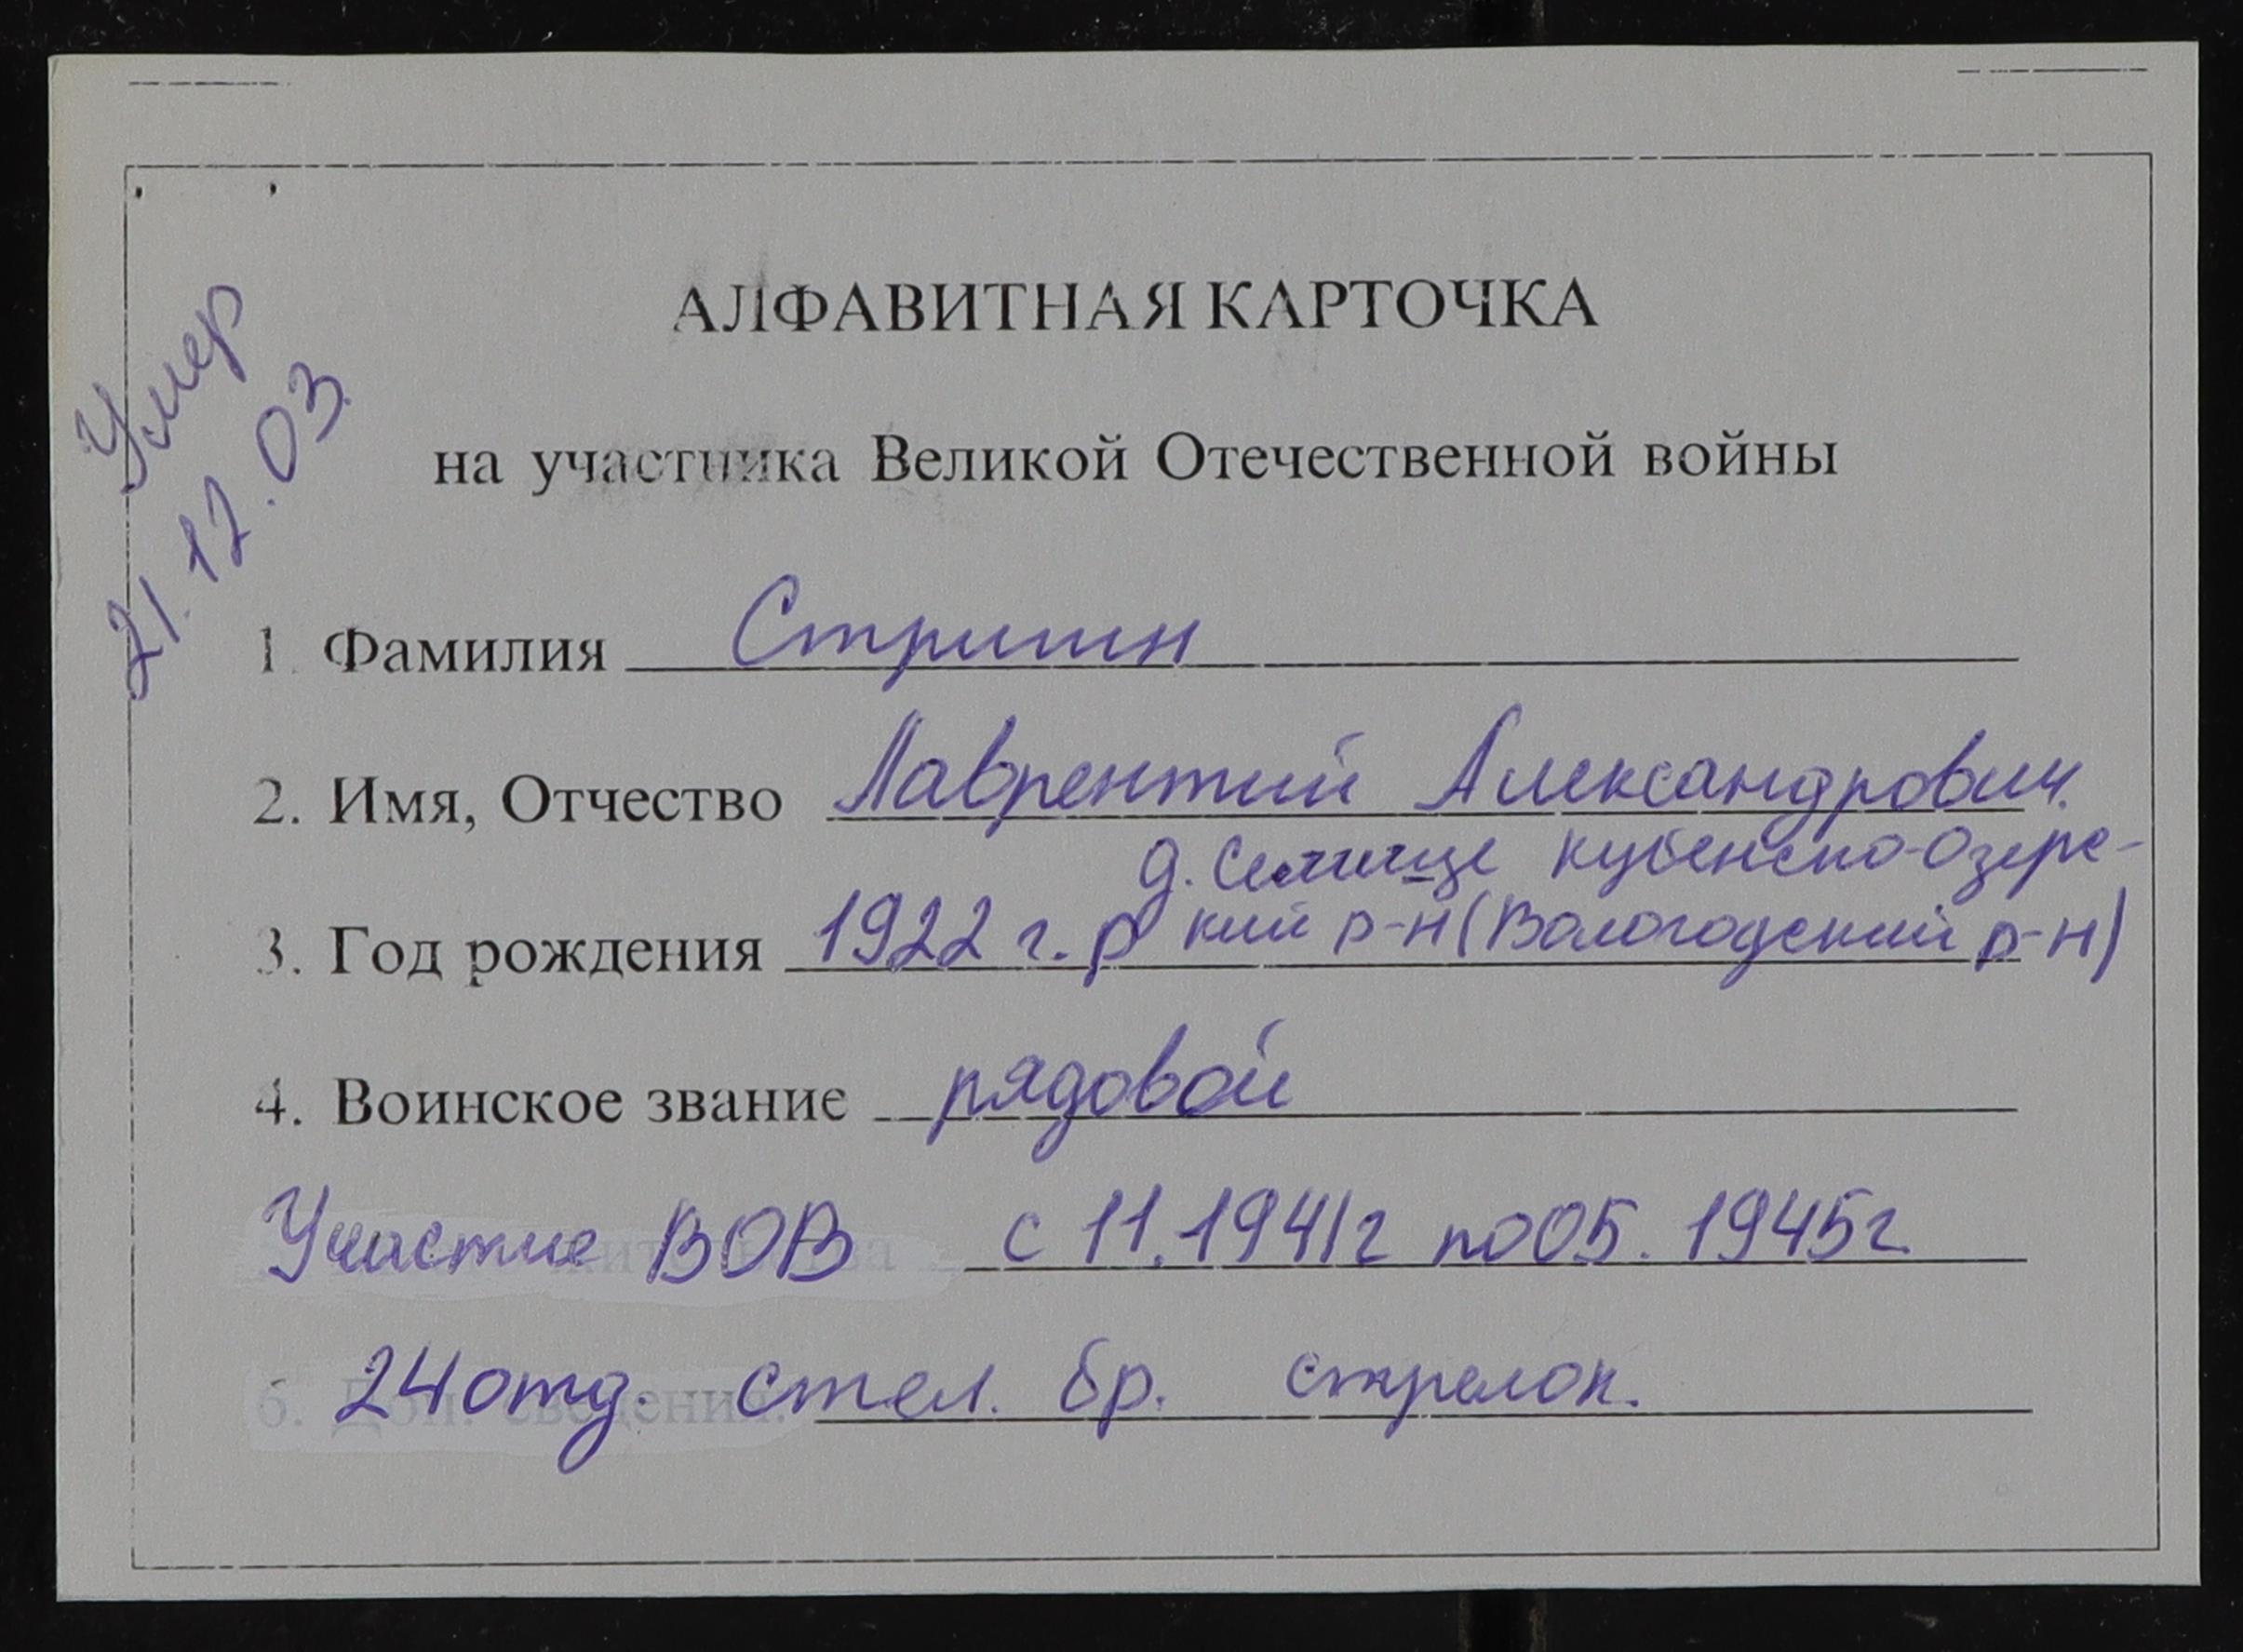 Умер
21.12.03.
АЛФАВИТНАЯ КАРТОЧКА
на участника Великой Отечественной войны
1. Фамилия Стришин
2. Имя, Отчество Лаврентий Александрович.
д. Селище Кубенско-Озерс-
3. Год рождения 1922 г. р кий р-н (Вологодский р-н)
4. Воинское звание рядовой
Участие ВОВ с 11.1941г по 05.1945г.
6. 24 отд. стел. бр. стрелок.